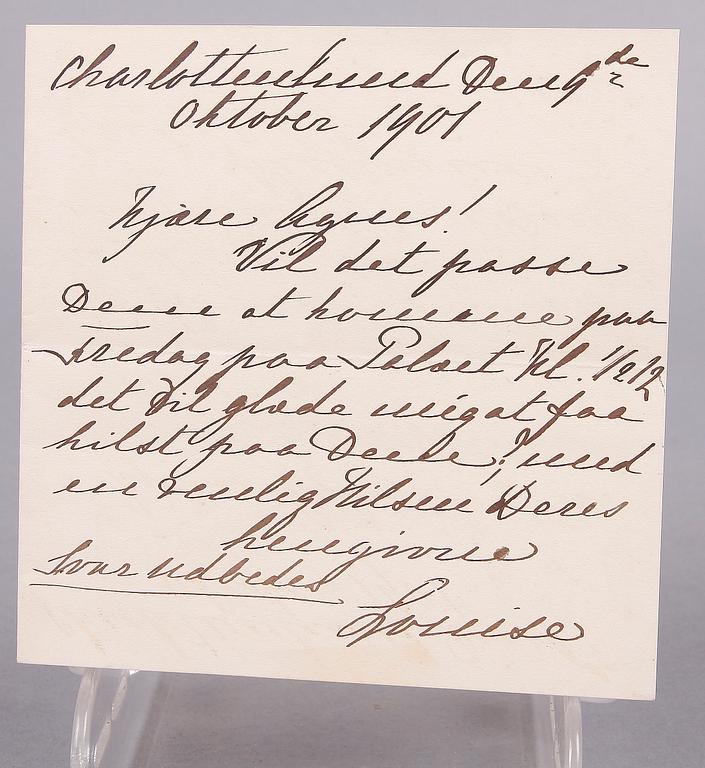 Charlottenlund Den 9de
Oktober 1901
Kjære Agnes!
Vil det passe
Dem at komme paa
Fredag paa Palæet Kl. 1/2 12
det vil glæde mig at faa
hilst paa Dem, med
en venlig Hilsen Deres
hengivne
Svar udbedes
Louise